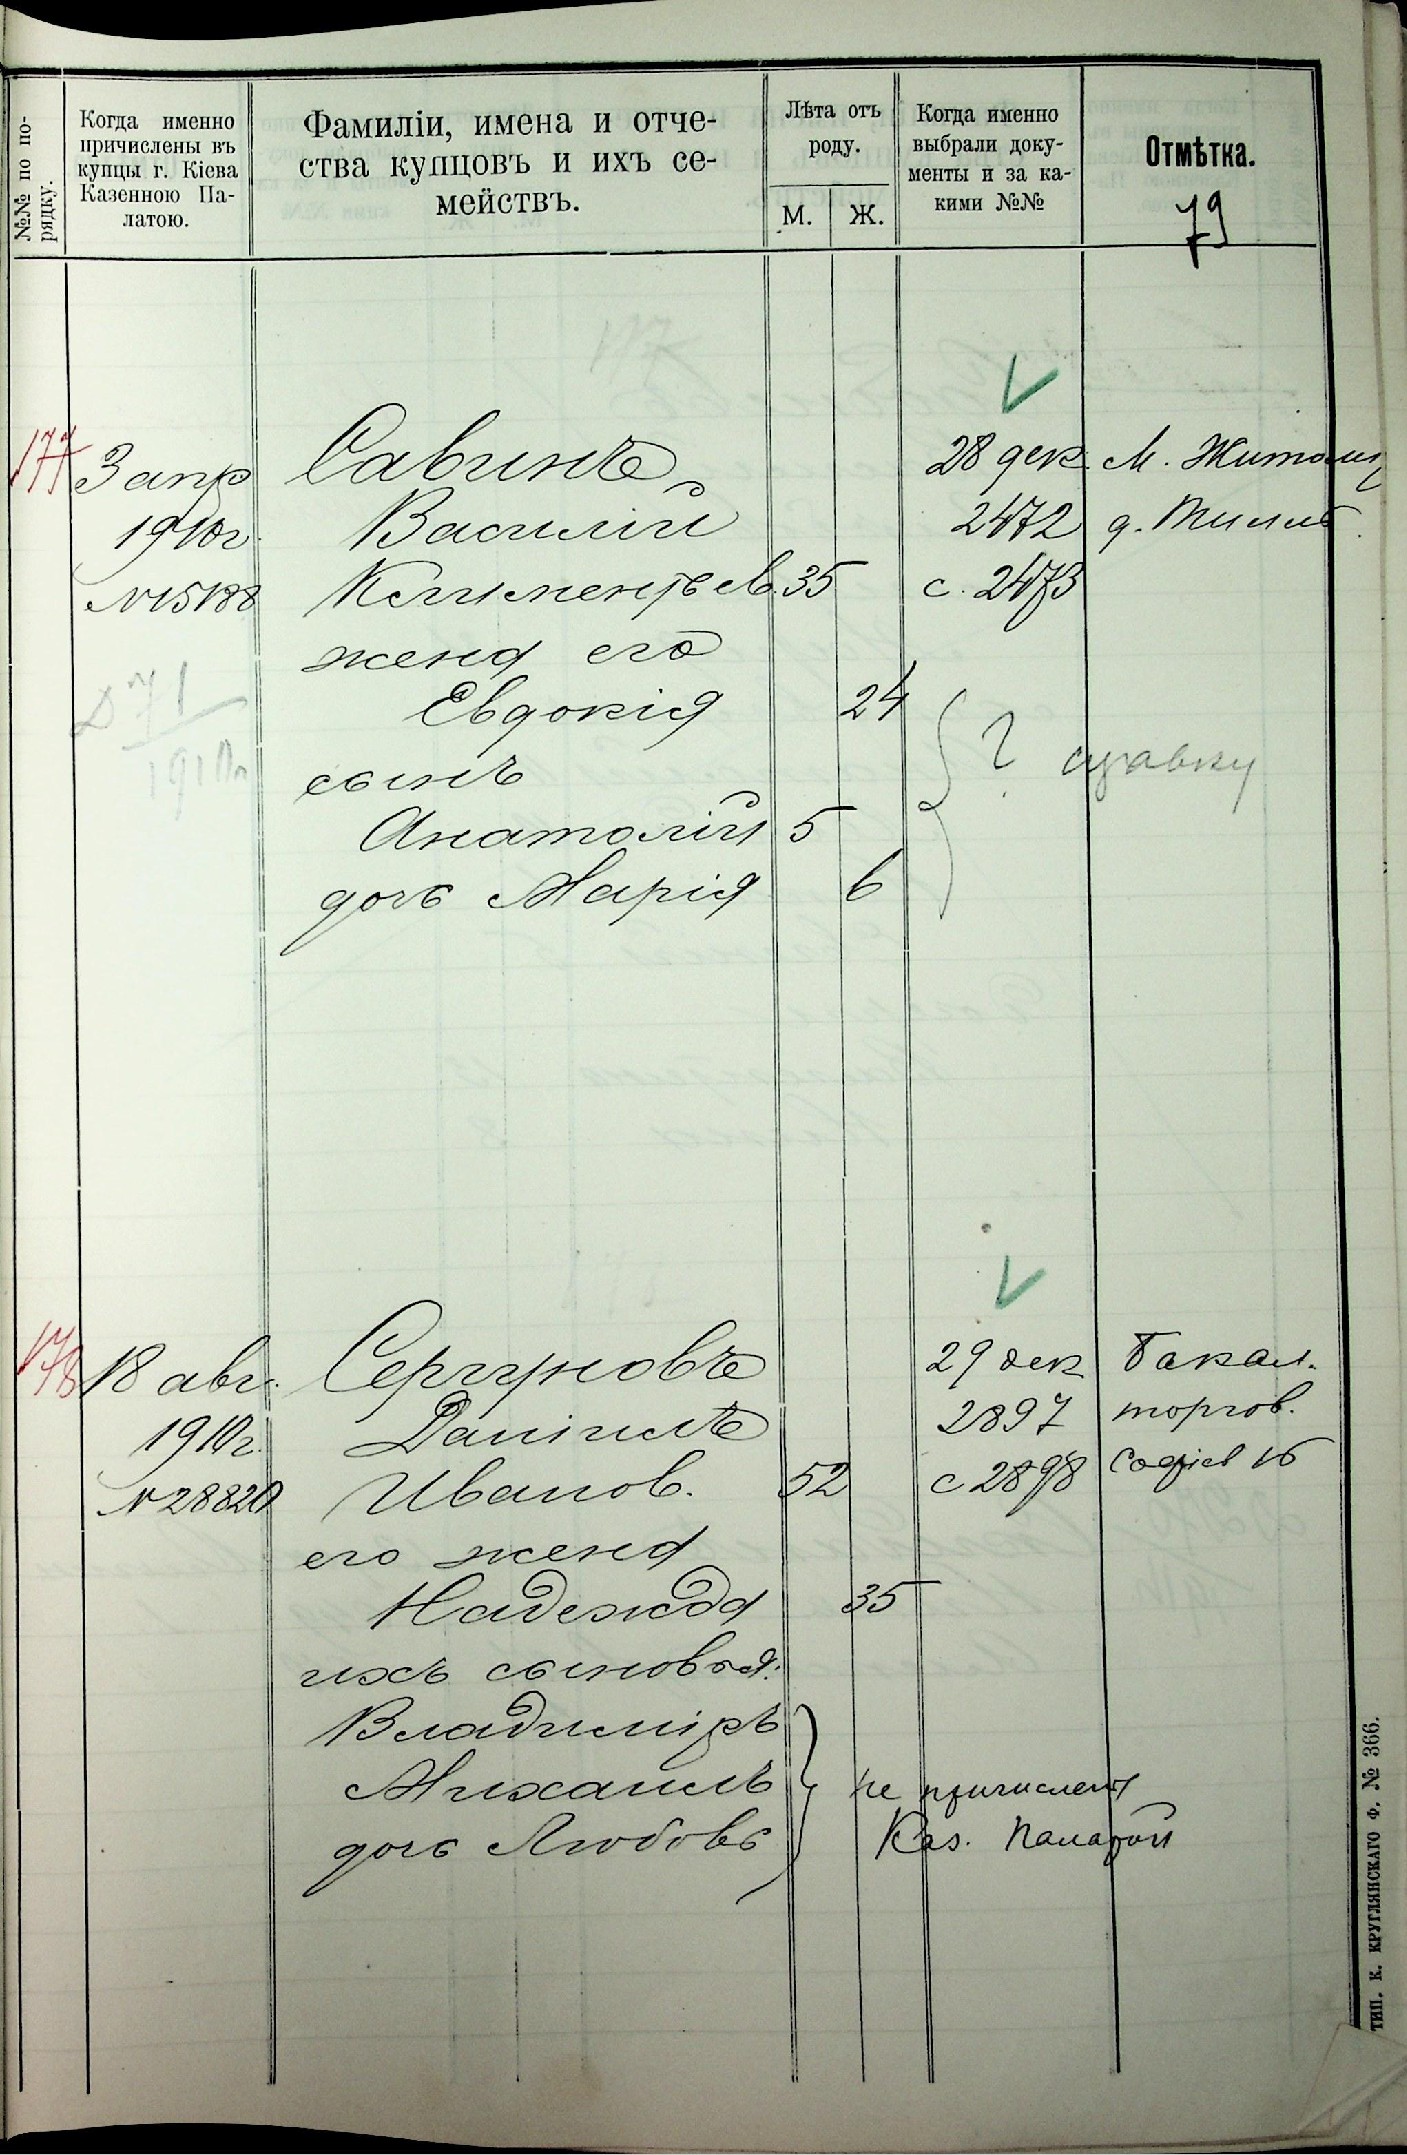 №№ по по-
рядку.
Когда именно
причислены въ
купцы г. Кіева
Казенною Па-
латою.
Фамиліи, имена и отче-
ства купцовъ и ихъ се-
мействъ.
Лѣта отъ
роду.
М.
Ж.
Когда именно
выбрали доку-
менты и за ка-
кими №№
Отмѣтка.
79
177
3 апр
1910г.
№15188
Савинъ
Василій
Климентьев. 35
жена его
Евдокія 24
сынъ
Анатолій 5
дочь Марія 6
28 дек.
2472
с. 2473
М. Житомир
д.
? справку
1910г
178
18 авг.
1910г.
№28820
Сергуновъ
Даніилъ
Иванов. 52
его жена
Надежда 35
ихъ сыновья:
Владиміръ
Михаилъ
дочь Любовь
не причислены
Каз. Палатой
29 дек
2897
с 2898
Бакал.
торгов.
Софіев 16
ТИП. К. КРУГЛЯНСКАГО Ф. № 366.